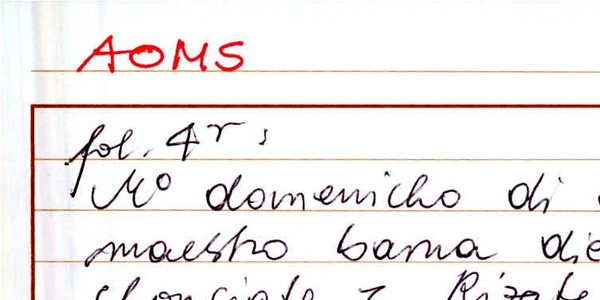 AOMS
fol. 4r,
Mo domenicho di
maestro bama die